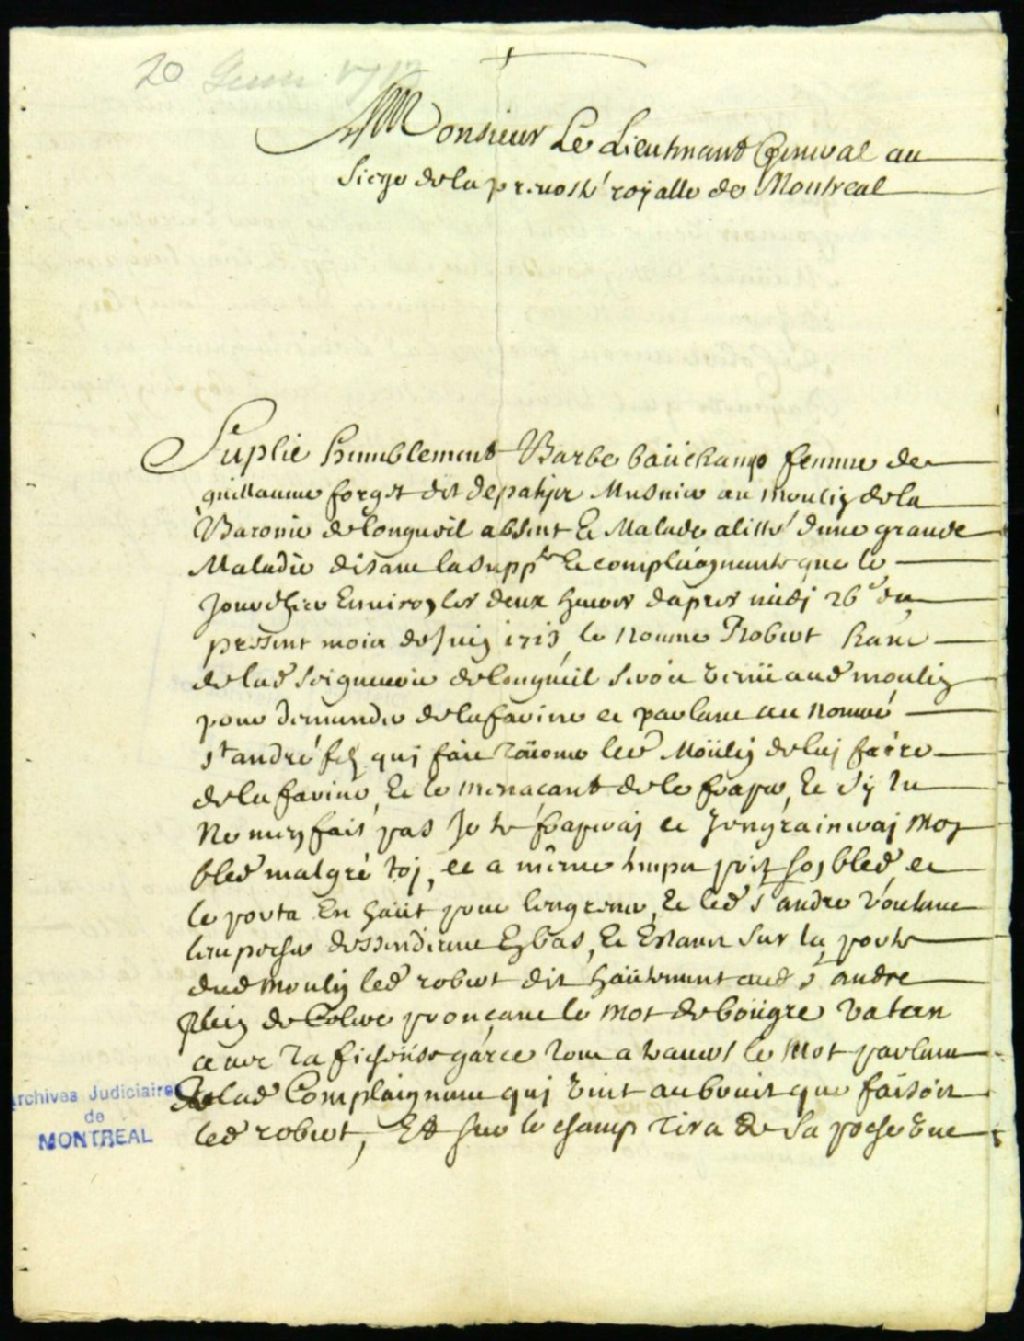 20 Juin 1713
A Monsieur Le Lieutenant General au
siege de la prevosté royalle de Montreal
Suplie humblement Barbe bauchamp femme de
guillaume forget dit depatye Musnier au moulin de la
Baronie de longueil absent Et Malade alitté d'une grande
Maladie disant la supp.te Et complaignante que le
Jour d'hier Environ les deux heures d'apres midj 26e du
present mois de Juin 1713, le nomme Robert
de lad seigneurie de longueil seroit venü aud moulin
pour demander de la farine et parlant au nommé
st andré qui fait Tourner led Moülin de luj faire
de la farine, Et le menaçant de le fraper, Et sy tu
Ne men fais pas Je te fraperaj et J'engraineraj Mon
bled malgré toj, et a même temps prit son bled et
le porta En haüt pour l'engrener, Et led st andré voulant
l'empescher dessendirent En bas, Et Estant sur la porte
dud Moulin led robert dit haütement aud st andre
plein de Colere pronçant le mot de boügre vaten
avec Ta fichüe garce tout a travers le Mot parlant
De lad Complaignante qui vint au bruit que faisoit
led robert, Et sur le champ Tira de sa poche une
Archives Judiciaires
de
MONTREAL